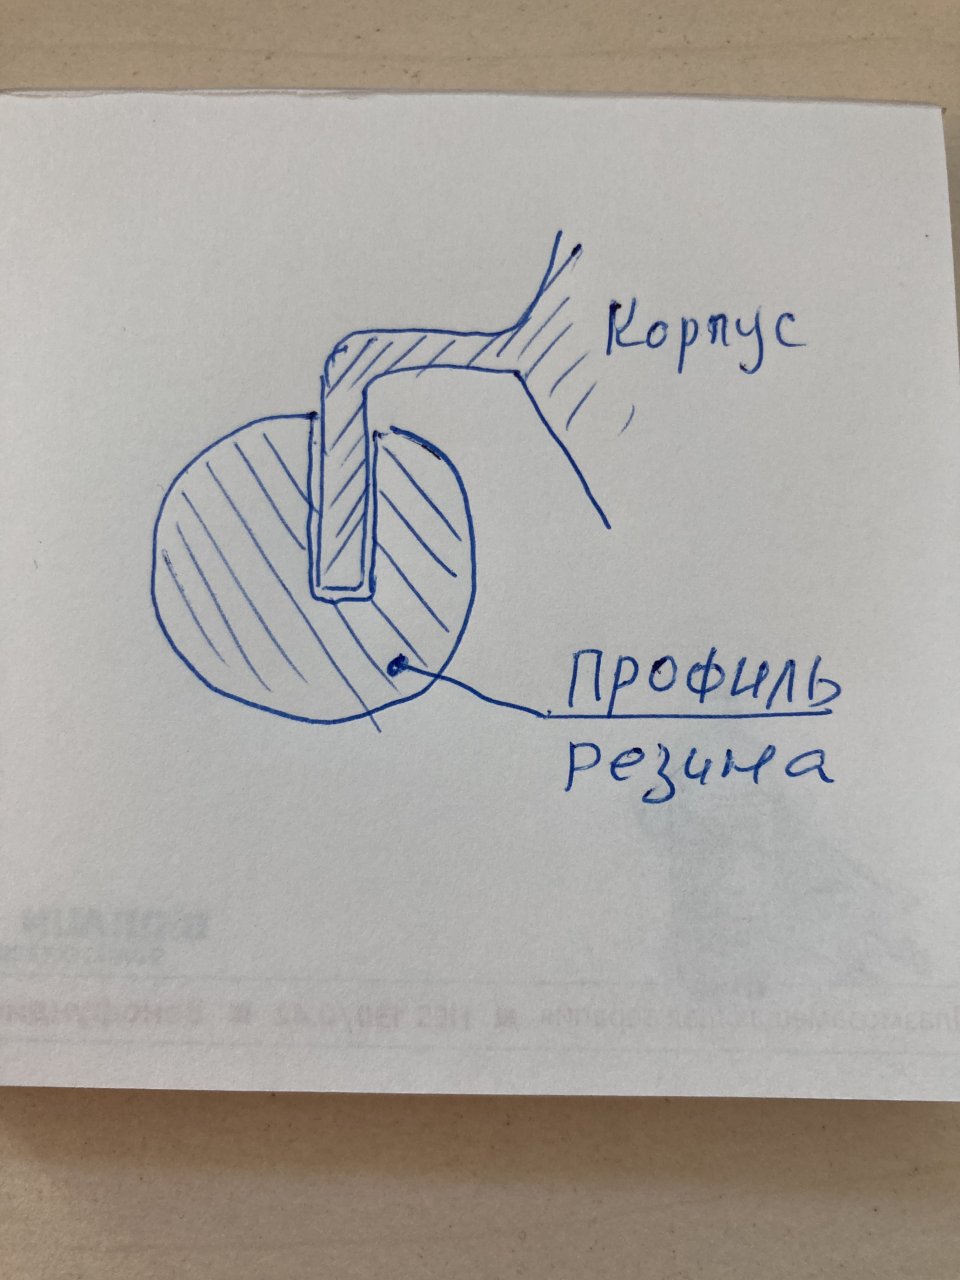 Корпус
Профиль
резина